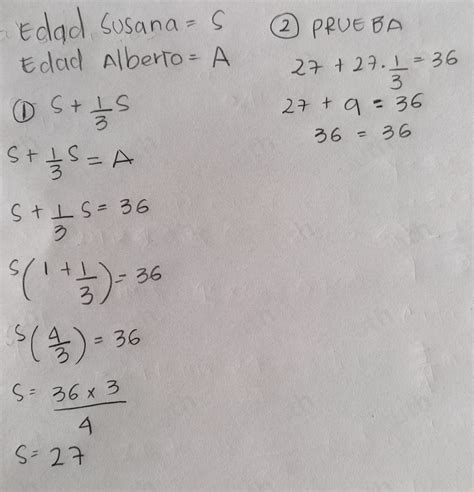 Edad Susana = S
Edad Alberto = A
① S + 1/3 S
S + 1/3 S = A
S + 1/3 S = 36
S(1 + 1/3) = 36
S(4/3) = 36
S = 36 x 3 / 4
S = 27
② PRUEBA
27 + 27 · 1/3 = 36
27 + 9 = 36
36 = 36